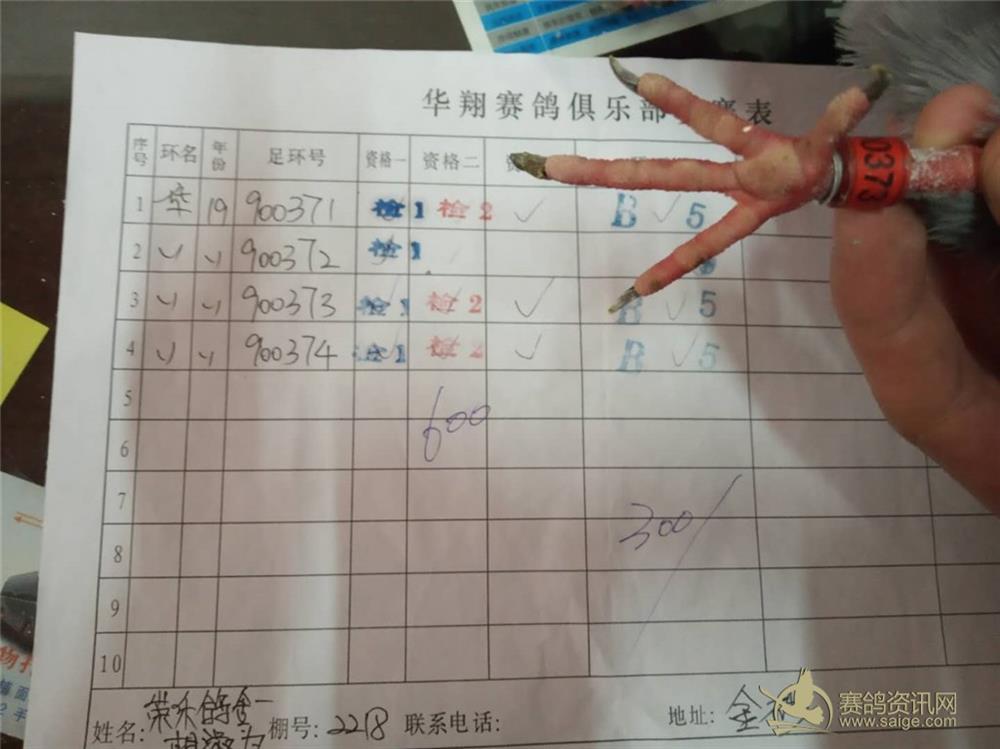 华翔赛鸽俱乐部 赛表
序号 环名 年份 足环号 资格一 资格二
1 华 19 900371 检1 检2 ✓ B ✓ 5
2 〃 〃 900372 检1
3 〃 〃 900373 检1 检2 ✓ B ✓ 5
4 〃 〃 900374 检1 检2 ✓ B ✓ 5
5
6 600
7
8 300
9
10
姓名: 荣乐鸽舍 棚号: 2218 联系电话: 地址: 金
0373
赛鸽资讯网
www.saige.com